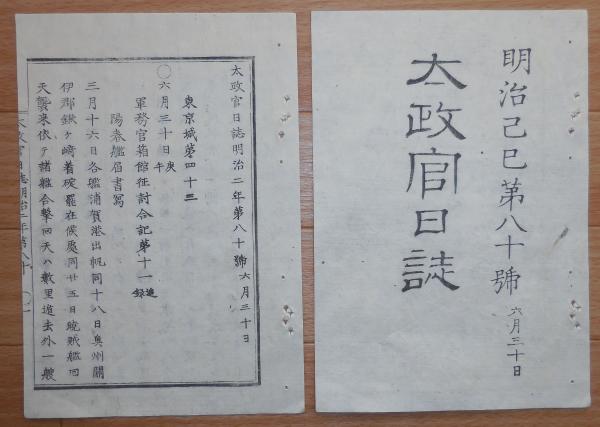 明治己巳第八十號
六月三十日
太政官日誌
太政官日誌明治二年第八十號 六月三十日
東京城第四十三
〇六月三十日庚午
軍務官箱館征討合記第十一 追録
陽春艦届書寫
三月十六日各艦浦賀港出帆同十八日奥州閉
伊郡鍬ヶ崎着碇罷在候處同廿五日暁賊艦回
天襲来依テ諸艦合撃回天ハ數里遁去外一艘
太政官日誌明治二年第八十